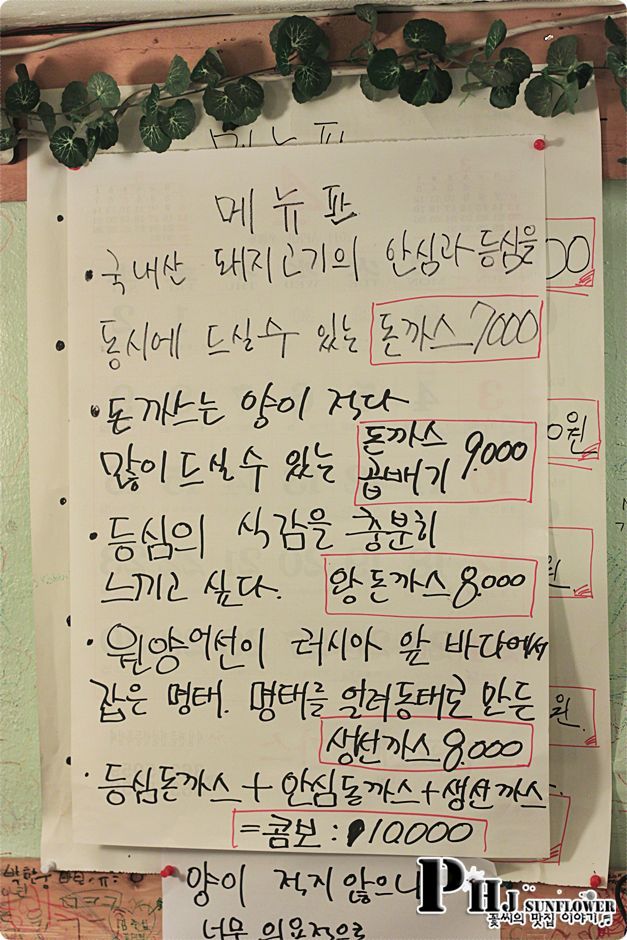 메뉴판
메뉴판
• 국내산 돼지고기의 안심과 등심을
동시에 드실수 있는 돈까스 7000
• 돈까스는 양이 적다
많이 드실수 있는 돈까스 곱배기 9,000
• 등심의 식감을 충분히
느끼고 싶다. 왕돈까스 8.000
• 원양어선이 러시아 앞 바다에서
잡은 명태. 명태를 얼려동태로 만든
생선까스 8.000
• 등심돈까스 + 안심돈까스 + 생선까스
= 콤보 : 10,000
00
0원
원
원.
양이 적지 않으니
너무 의욕적으로
PHJ SUNFLOWER
꽃씨의 맛집 이야기♬